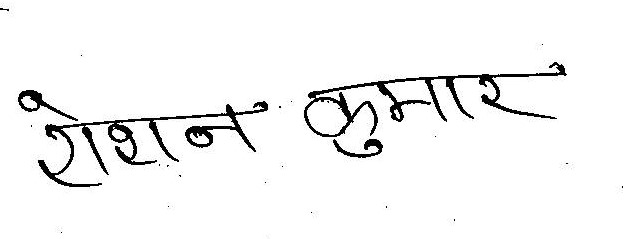 रोशन कुमार